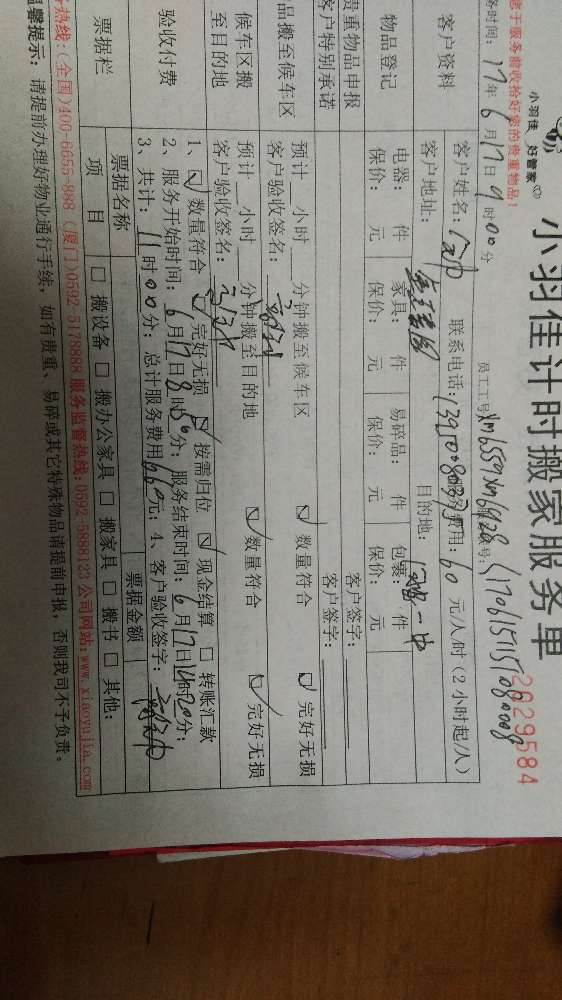 小羽佳 好管家
小羽佳计时搬家服务单
2029584
您于服务前收拾好您的贵重物品！
务时间：17年6月17日9时00分
员工工号
客户资料
客户姓名：
联系电话：
费用：60元/人/时(2小时起/人)
客户地址：
目的地：
物品登记
电器： 件 家具： 件 易碎品： 件 包裹： 件
保价： 元 保价： 元 保价： 元 保价： 元
贵重物品申报
客户签字：
客户特别承诺
客户签字：
品搬至候车区
预计 小时 分钟搬至候车区 ☑数量符合 ☑完好无损
客户验收签名：
候车区搬
至目的地
预计 小时 分钟搬至目的地 ☑数量符合 ☑完好无损
客户验收签名：
验收付费
1、☑数量符合 ☑完好无损 ☑按需归位 ☑现金结算 □转账汇款
2、服务开始时间：6月17日8时 分；服务结束时间：6月17日 时20分；
3、共计：11时00分；总计服务费用660元；4、客户验收签字：
票据栏
票据名称
票据金额
项 目
□搬设备 □搬办公家具 □搬家具 □搬书 □其他：
务热线：(全国)400-6655-888 (厦门)0592-5178888 服务监督热线：0592-5888123 公司网站：www.xiaoyujia.com
温馨提示：请提前办理好物业通行手续，如有贵重、易碎或其它特殊物品请提前申报，否则我司不予负责。